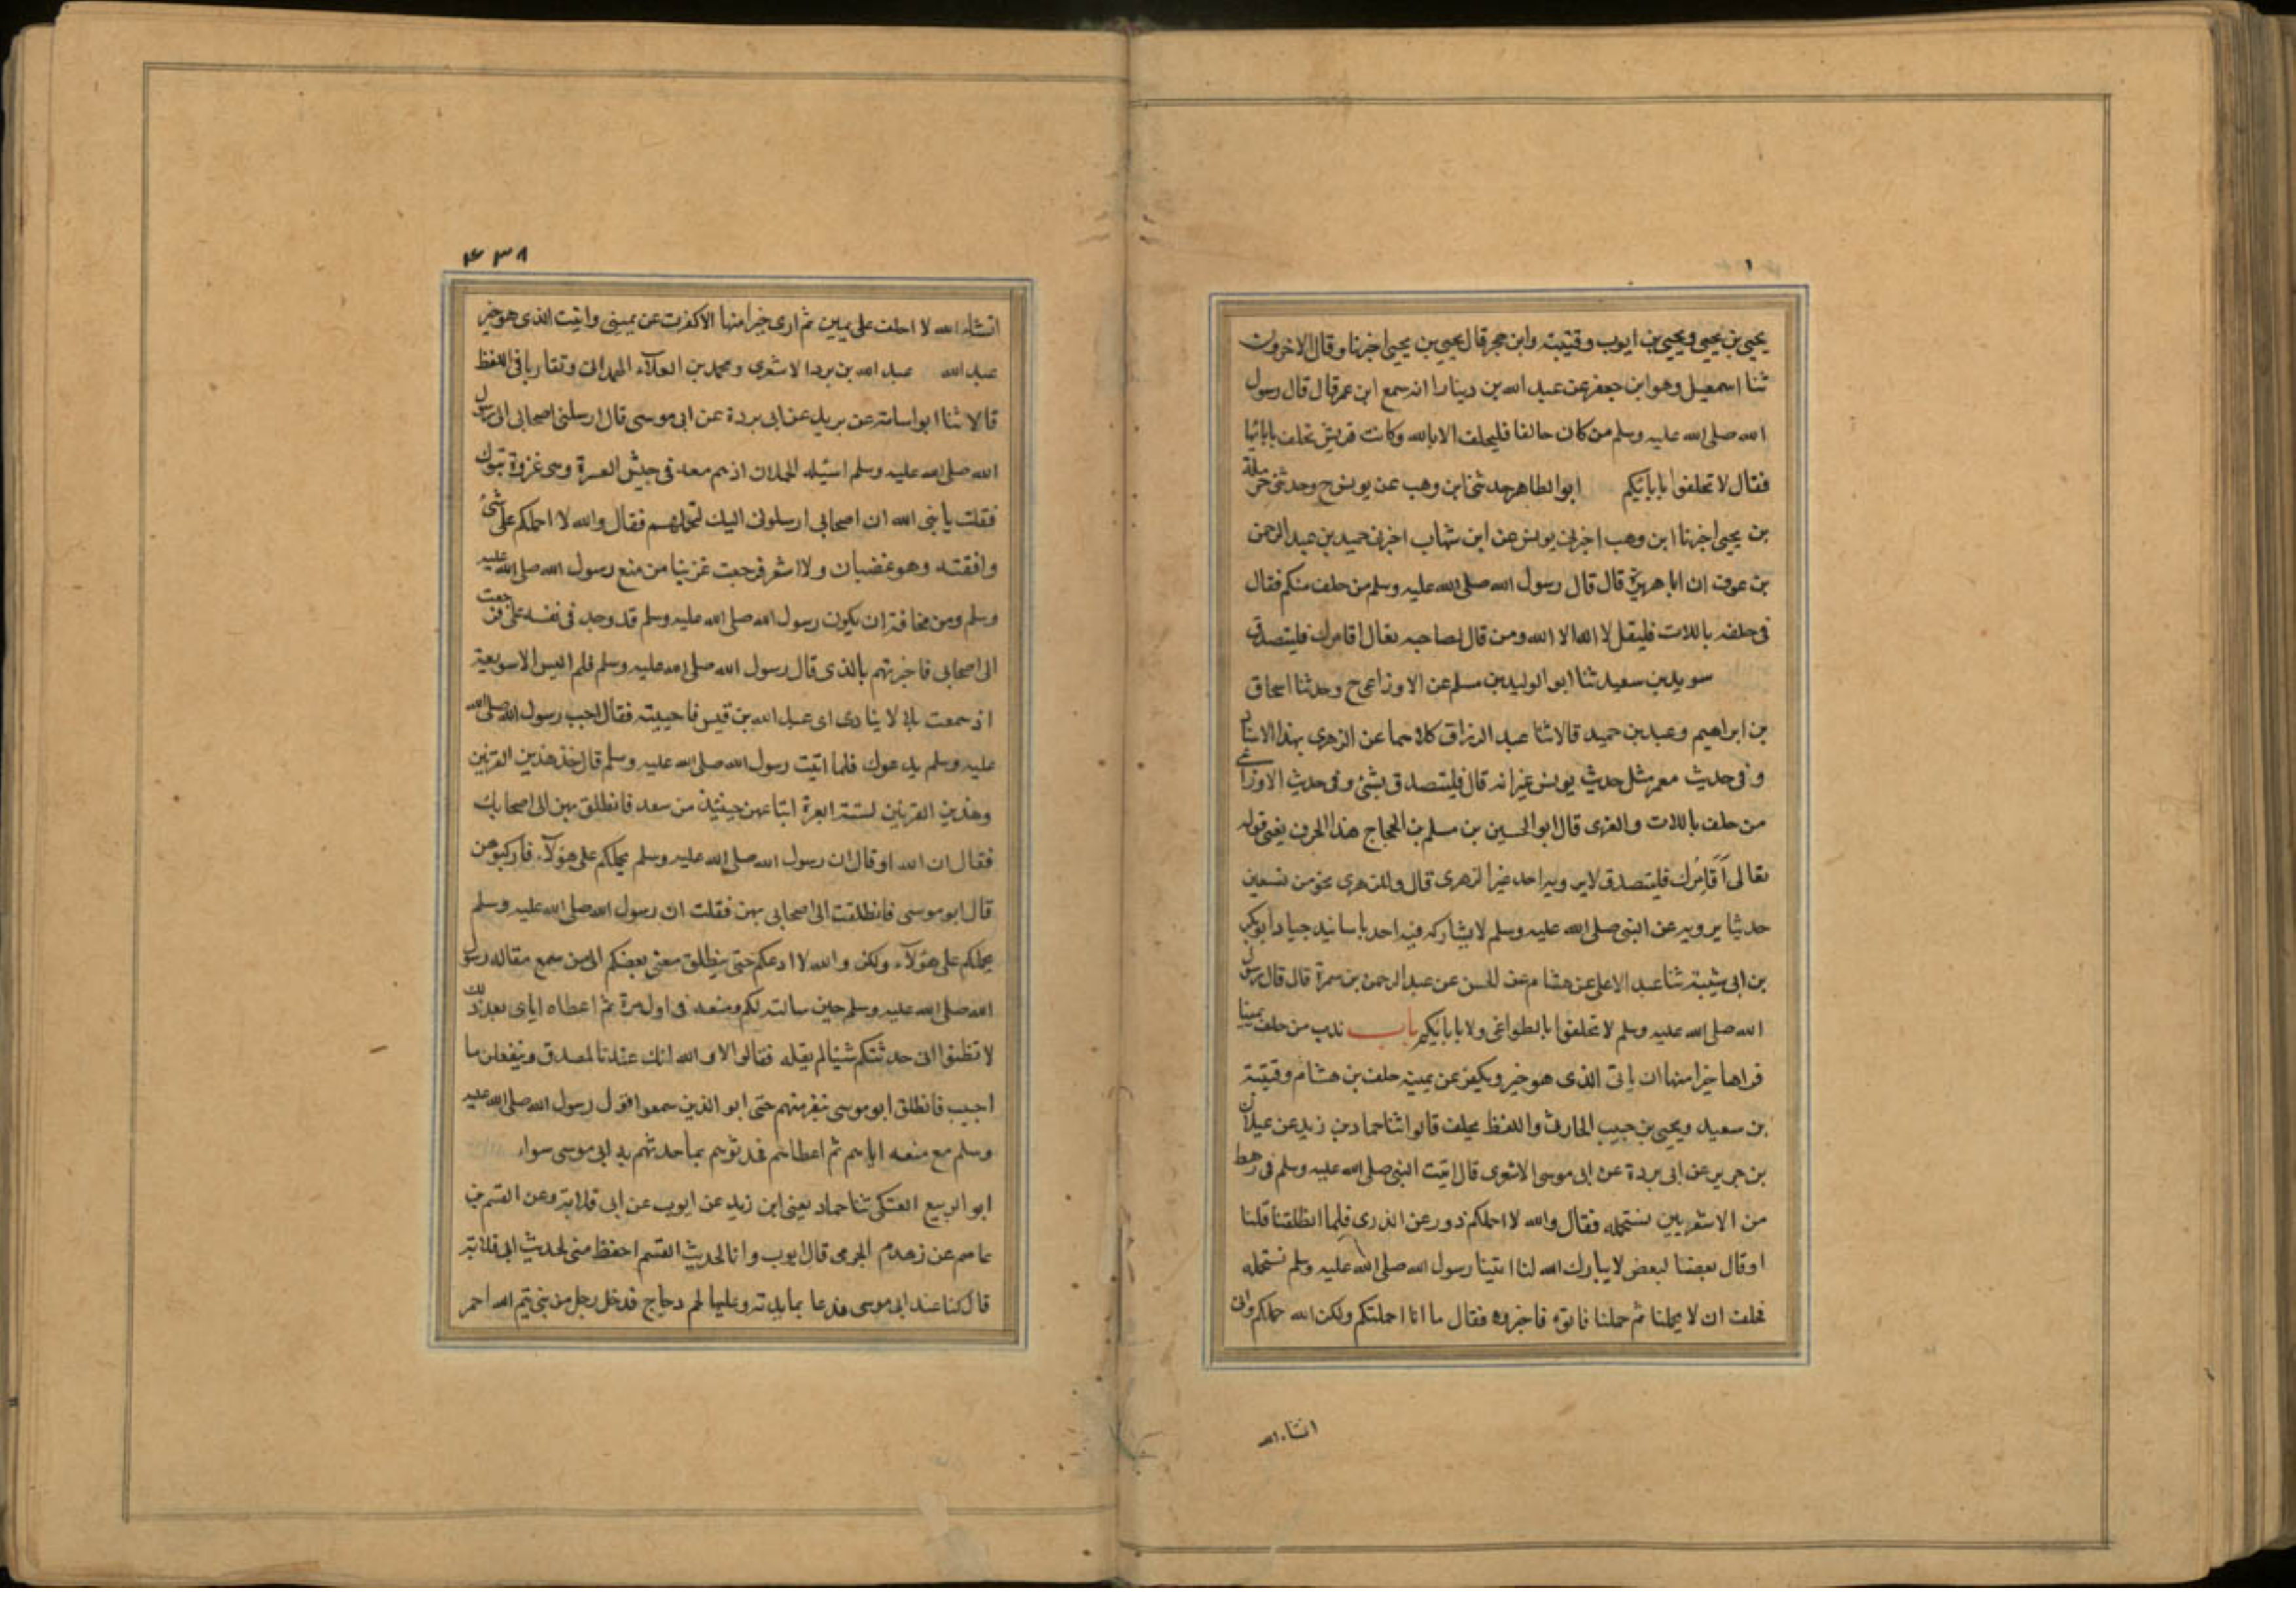 يحيى بن يحيى ويحيى بن ايوب وقتيبة وابن حجر قال يحيى بن يحيى اخبرنا وقال الاخرون
ثنا اسمعيل وهو ابن جعفر عن عبد الله بن دينار انه سمع ابن عمر قال قال رسول
الله صلى الله عليه وسلم من كان حالفا فليحلف الا بالله وكانت قريش تحلف بابائها
فقال لا تحلفوا بابائكم ابو الطاهر حدثنى ابن وهب عن يونس ح وحدثنى حرملة
بن يحيى اخبرنا ابن وهب اخبرنى يونس عن ابن شهاب اخبرنى حميد بن عبد الرحمن
بن عوف ان ابا هريرة قال قال رسول الله صلى الله عليه وسلم من حلف منكم فقال
فى حلفه باللات فليقل لا اله الا الله ومن قال لصاحبه تعال اقامرك فليتصدق
سويد بن سعيد ثنا ابو الوليد بن مسلم عن الاوزاعى ح وحدثنا اسحاق
بن ابراهيم وعبد بن حميد قالا ثنا عبد الرزاق كلاهما عن الزهرى بهذا الاسناد
وفى حديث معمر مثل حديث يونس غير انه قال فليتصدق بشئ وفى حديث الاوزاعى
من حلف باللات والعزى قال ابو الحسين بن مسلم بن الحجاج هذا الحرف يعنى قوله
تعالى اقامرك فليتصدق لا يرويه احد غير الزهرى قال وللزهرى نحو من تسعين
حديثا يرويه عن النبى صلى الله عليه وسلم لا يشاركه فيه احد باسانيد جياد ابو بكر
بن ابى شيبة ثنا عبد الاعلى عن هشام عن الحسن عن عبد الرحمن بن سمرة قال قال رسول
الله صلى الله عليه وسلم لا تحلفوا بالطواغى ولا بابائكم باب ندب من حلف يمينا
فراها خيرا منها ان ياتى الذى هو خير ويكفر عن يمينه خلف بن هشام وقتيبة
بن سعيد ويحيى بن حبيب الحارثى واللفظ لخلف قالوا ثنا حماد بن زيد عن غيلان
بن جرير عن ابى بردة عن ابى موسى الاشعرى قال اتيت النبى صلى الله عليه وسلم فى رهط
من الاشعريين نستحمله فقال والله لا احملكم فلما انطلقنا قلنا
او قال بعضنا لبعض لا يبارك الله لنا اتينا رسول الله صلى الله عليه وسلم نستحمله
فحلف ان لا يحملنا ثم حملنا فاتوه فاخبروه فقال ما انا احملتكم ولكن الله حملكم وانى
انشاء الله
٤٣٨
انشاء الله لا احلف على يمين ثم ارى خيرا منها الا كفرت عن يمينى واتيت الذى هو خير
عبد الله عبد الله بن براد الاشعرى ومحمد بن العلآء الهمدانى وتقاربا فى اللفظ
قالا ثنا ابو اسامة عن بريد عن ابى بردة عن ابى موسى قال ارسلنى اصحابى الى رسول
الله صلى الله عليه وسلم اسئله الحملان اذ هم معه فى جيش العسرة وهى غزوة تبوك
فقلت يا نبى الله ان اصحابى ارسلونى اليك لتحملهم فقال والله لا احملكم على شئ
وافقته وهو غضبان ولا اشعر فرجعت حزينا من منع رسول الله صلى الله عليه
وسلم ومن مخافة ان يكون رسول الله صلى الله عليه وسلم قد وجد فى نفسه على فرجعت
الى اصحابى فاخبرتهم بالذى قال رسول الله صلى الله عليه وسلم فلم البس الا سويعة
اذ سمعت بلالا ينادى اى عبد الله بن قيس فاجبته فقال اجب رسول الله صلى الله
عليه وسلم يدعوك فلما اتيت رسول الله صلى الله عليه وسلم قال خذ هذين القرنين
وهذين القرنين لستة ابعرة ابتاعهن حينئذ من سعد فانطلق بهن الى اصحابك
فقال ان الله او قال ان رسول الله صلى الله عليه وسلم يحملكم على هؤلآء فاركبوهن
قال ابو موسى فانطلقت الى اصحابى بهن فقلت ان رسول الله صلى الله عليه وسلم
يحملكم على هؤلآء ولكن والله لا ادعكم حتى ينطلق معى بعضكم الى من سمع مقاله رسول
الله صلى الله عليه وسلم حين سالته لكم ومنعه فى اول مرة ثم اعطاه اياى بعد ذلك
لا تظنوا انى حدثتكم شيئا لم يقله فقالوا لا والله انك عندنا لمصدق ولنفعلن ما
احببت فانطلق ابو موسى بنفر منهم حتى اتو الذين سمعوا قول رسول الله صلى الله عليه
وسلم مع منعه اياهم ثم اعطاهم فحدثوهم بما حدثهم به ابى موسى سواء
ابو الربيع العتكى ثنا حماد يعنى ابن زيد عن ايوب عن ابى قلابة وعن القسم بن
عاصم عن زهدم الجرمى قال ايوب وانا لحديث القسم احفظ منى لحديث ابى قلابة
قال كنا عند ابى موسى فدعا بمايدته وعليها لحم دجاج فدخل رجل من بنى تيم الله احمر